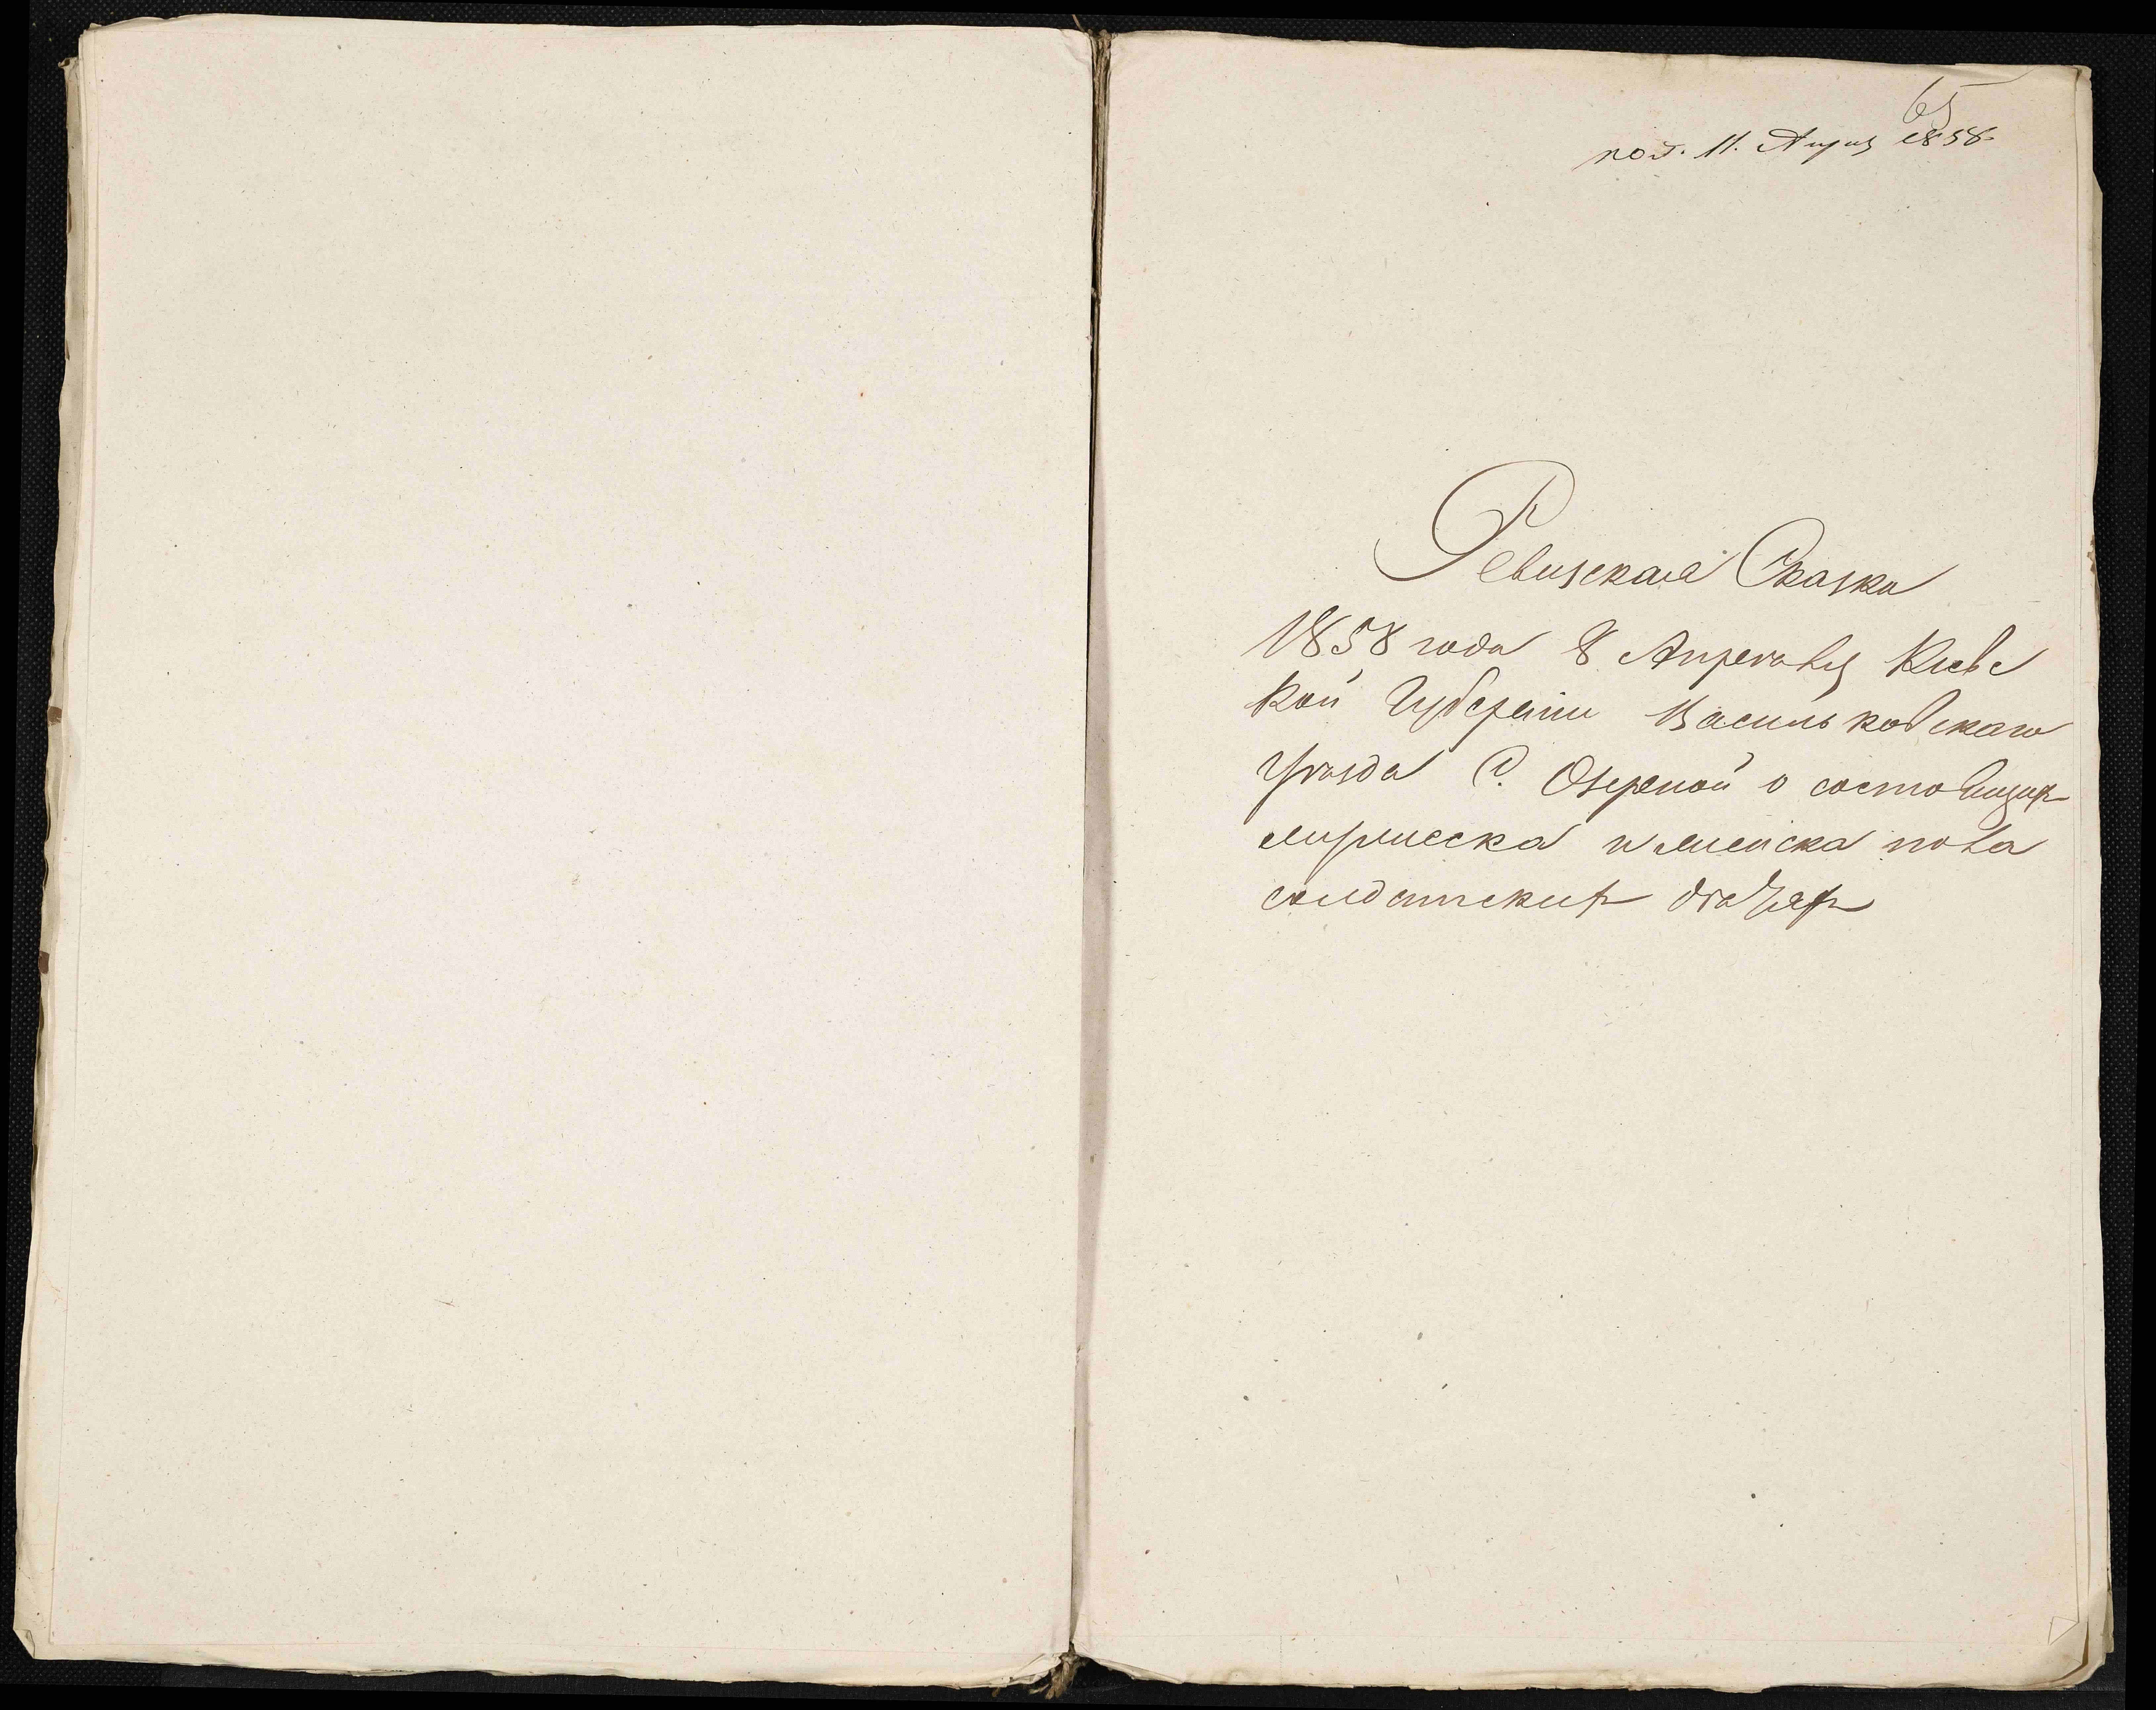 65
пол. 11. Апрѣля 1858
Ревизская Сказка
1858 года 8 Апрѣля Кіевс
кой Губерніи Васильковскаго
уѣзда С. Озерной о состоящих
мужеска и женска пола
солдатских дѣтях